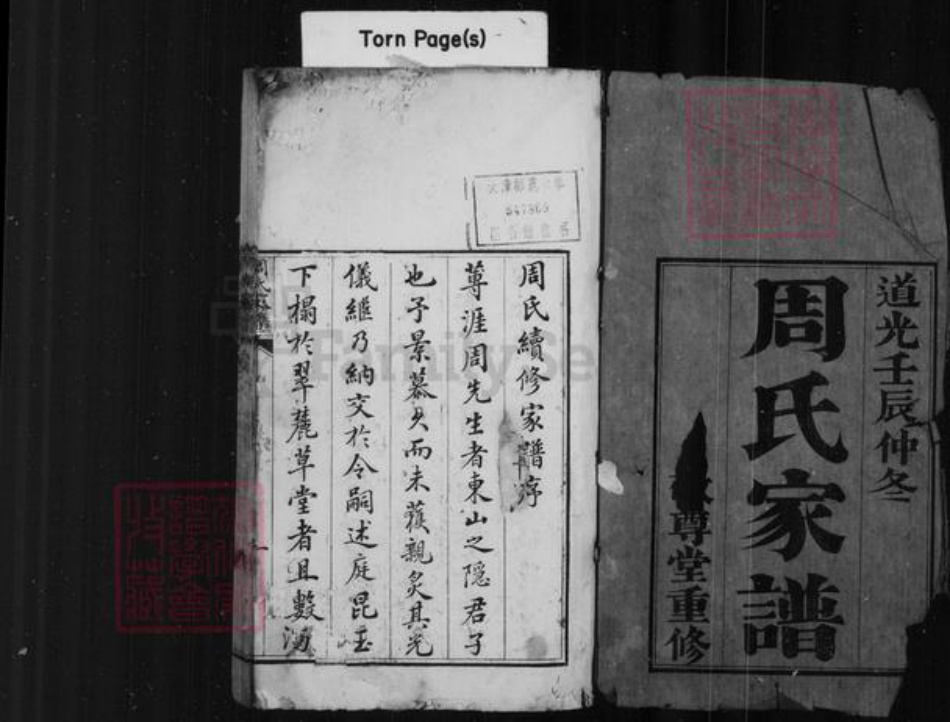 Torn Page(s)
道光壬辰仲冬
周氏家譜
尊堂重修
周氏續修家譜序
蓴涯周先生者東山之隱君子
也予景慕久而未獲親炙其光
儀繼乃納交於令嗣述庭昆玉
下榻於翠麓草堂者且數
FamilySe